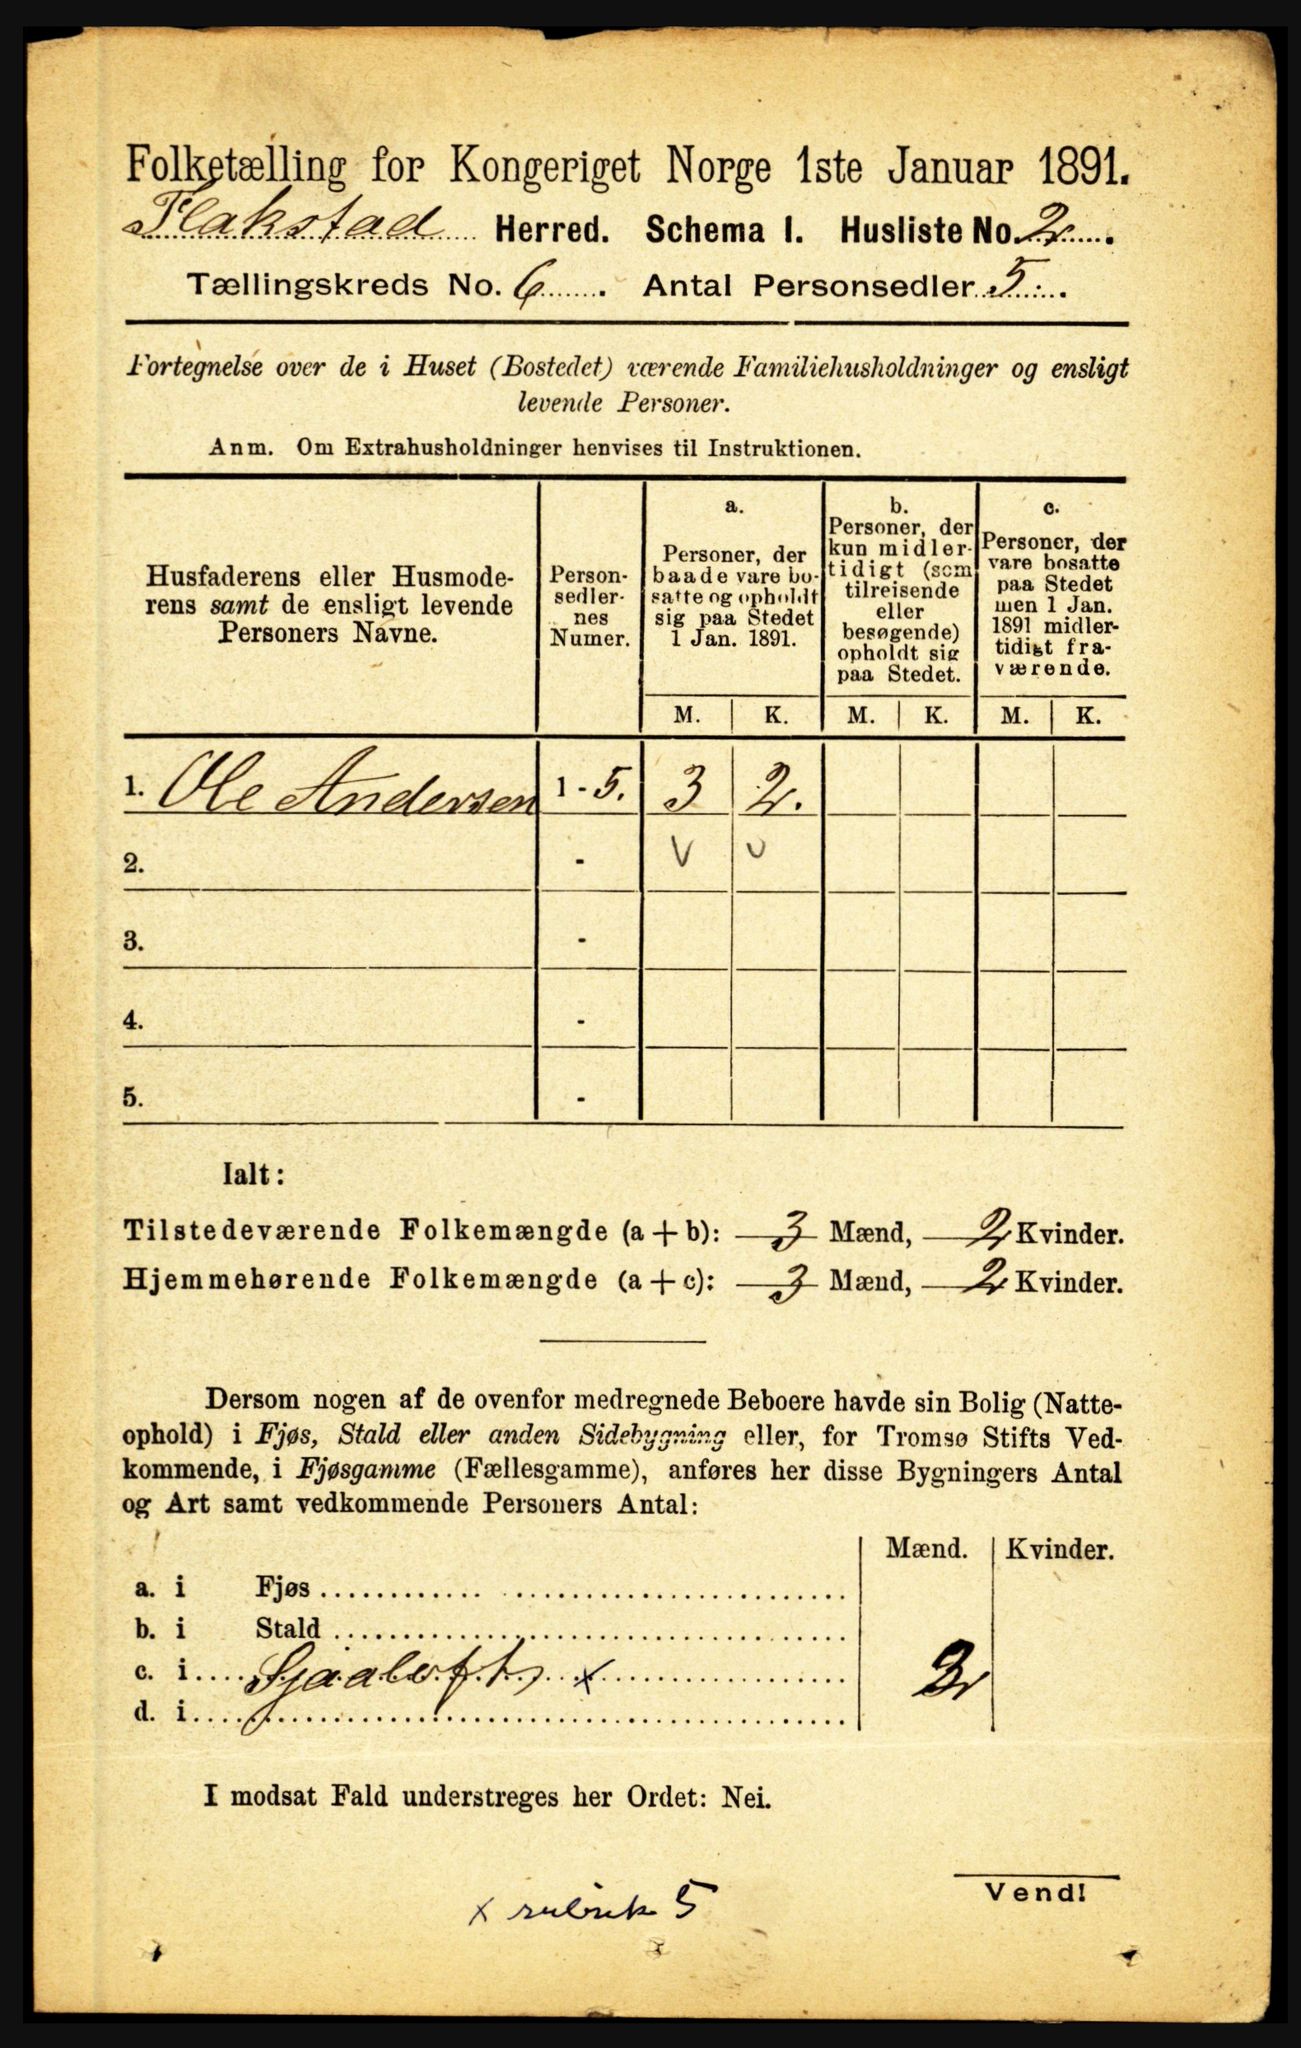 Folketælling for Kongeriget Norge 1ste Januar 1891.
Flakstad Herred. Schema I. Husliste No. 2.
Tællingskreds No. 6. Antal Personsedler 5.
Fortegnelse over de i Huset (Bostedet) værende Familiehusholdninger og ensligt
levende Personer.
Anm. Om Extrahusholdninger henvises til Instruktionen.
Husfaderens eller Husmode-
rens samt de ensligt levende
Personers Navne.
Person-
sedler-
nes
Numer.
a.
Personer, der
baade vare bo-
satte og opholdt
sig paa Stedet
1 Jan. 1891.
b.
Personer, der
kun midler-
tidigt (som
tilreisende
eller
besøgende)
opholdt sig
paa Stedet.
c.
Personer, der
vare bosatte
paa Stedet
men 1 Jan.
1891 midler-
tidigt fra-
værende.
M. K. M. K. M. K.
1. Ole Andersen 1 - 5. 3 2.
2. - v v
3. -
4. -
5. -
Ialt:
Tilstedeværende Folkemængde (a + b): 3 Mænd, 2 Kvinder.
Hjemmehørende Folkemængde (a + c): 3 Mænd, 2 Kvinder.
Dersom nogen af de ovenfor medregnede Beboere havde sin Bolig (Natte-
ophold) i Fjøs, Stald eller anden Sidebygning eller, for Tromsø Stifts Ved-
kommende, i Fjøsgamme (Fællesgamme), anføres her disse Bygningers Antal
og Art samt vedkommende Personers Antal:
Mænd. Kvinder.
a. i Fjøs
b. i Stald
c. i x 2
d. i
I modsat Fald understreges her Ordet: Nei.
Vend!
x rubrik 5